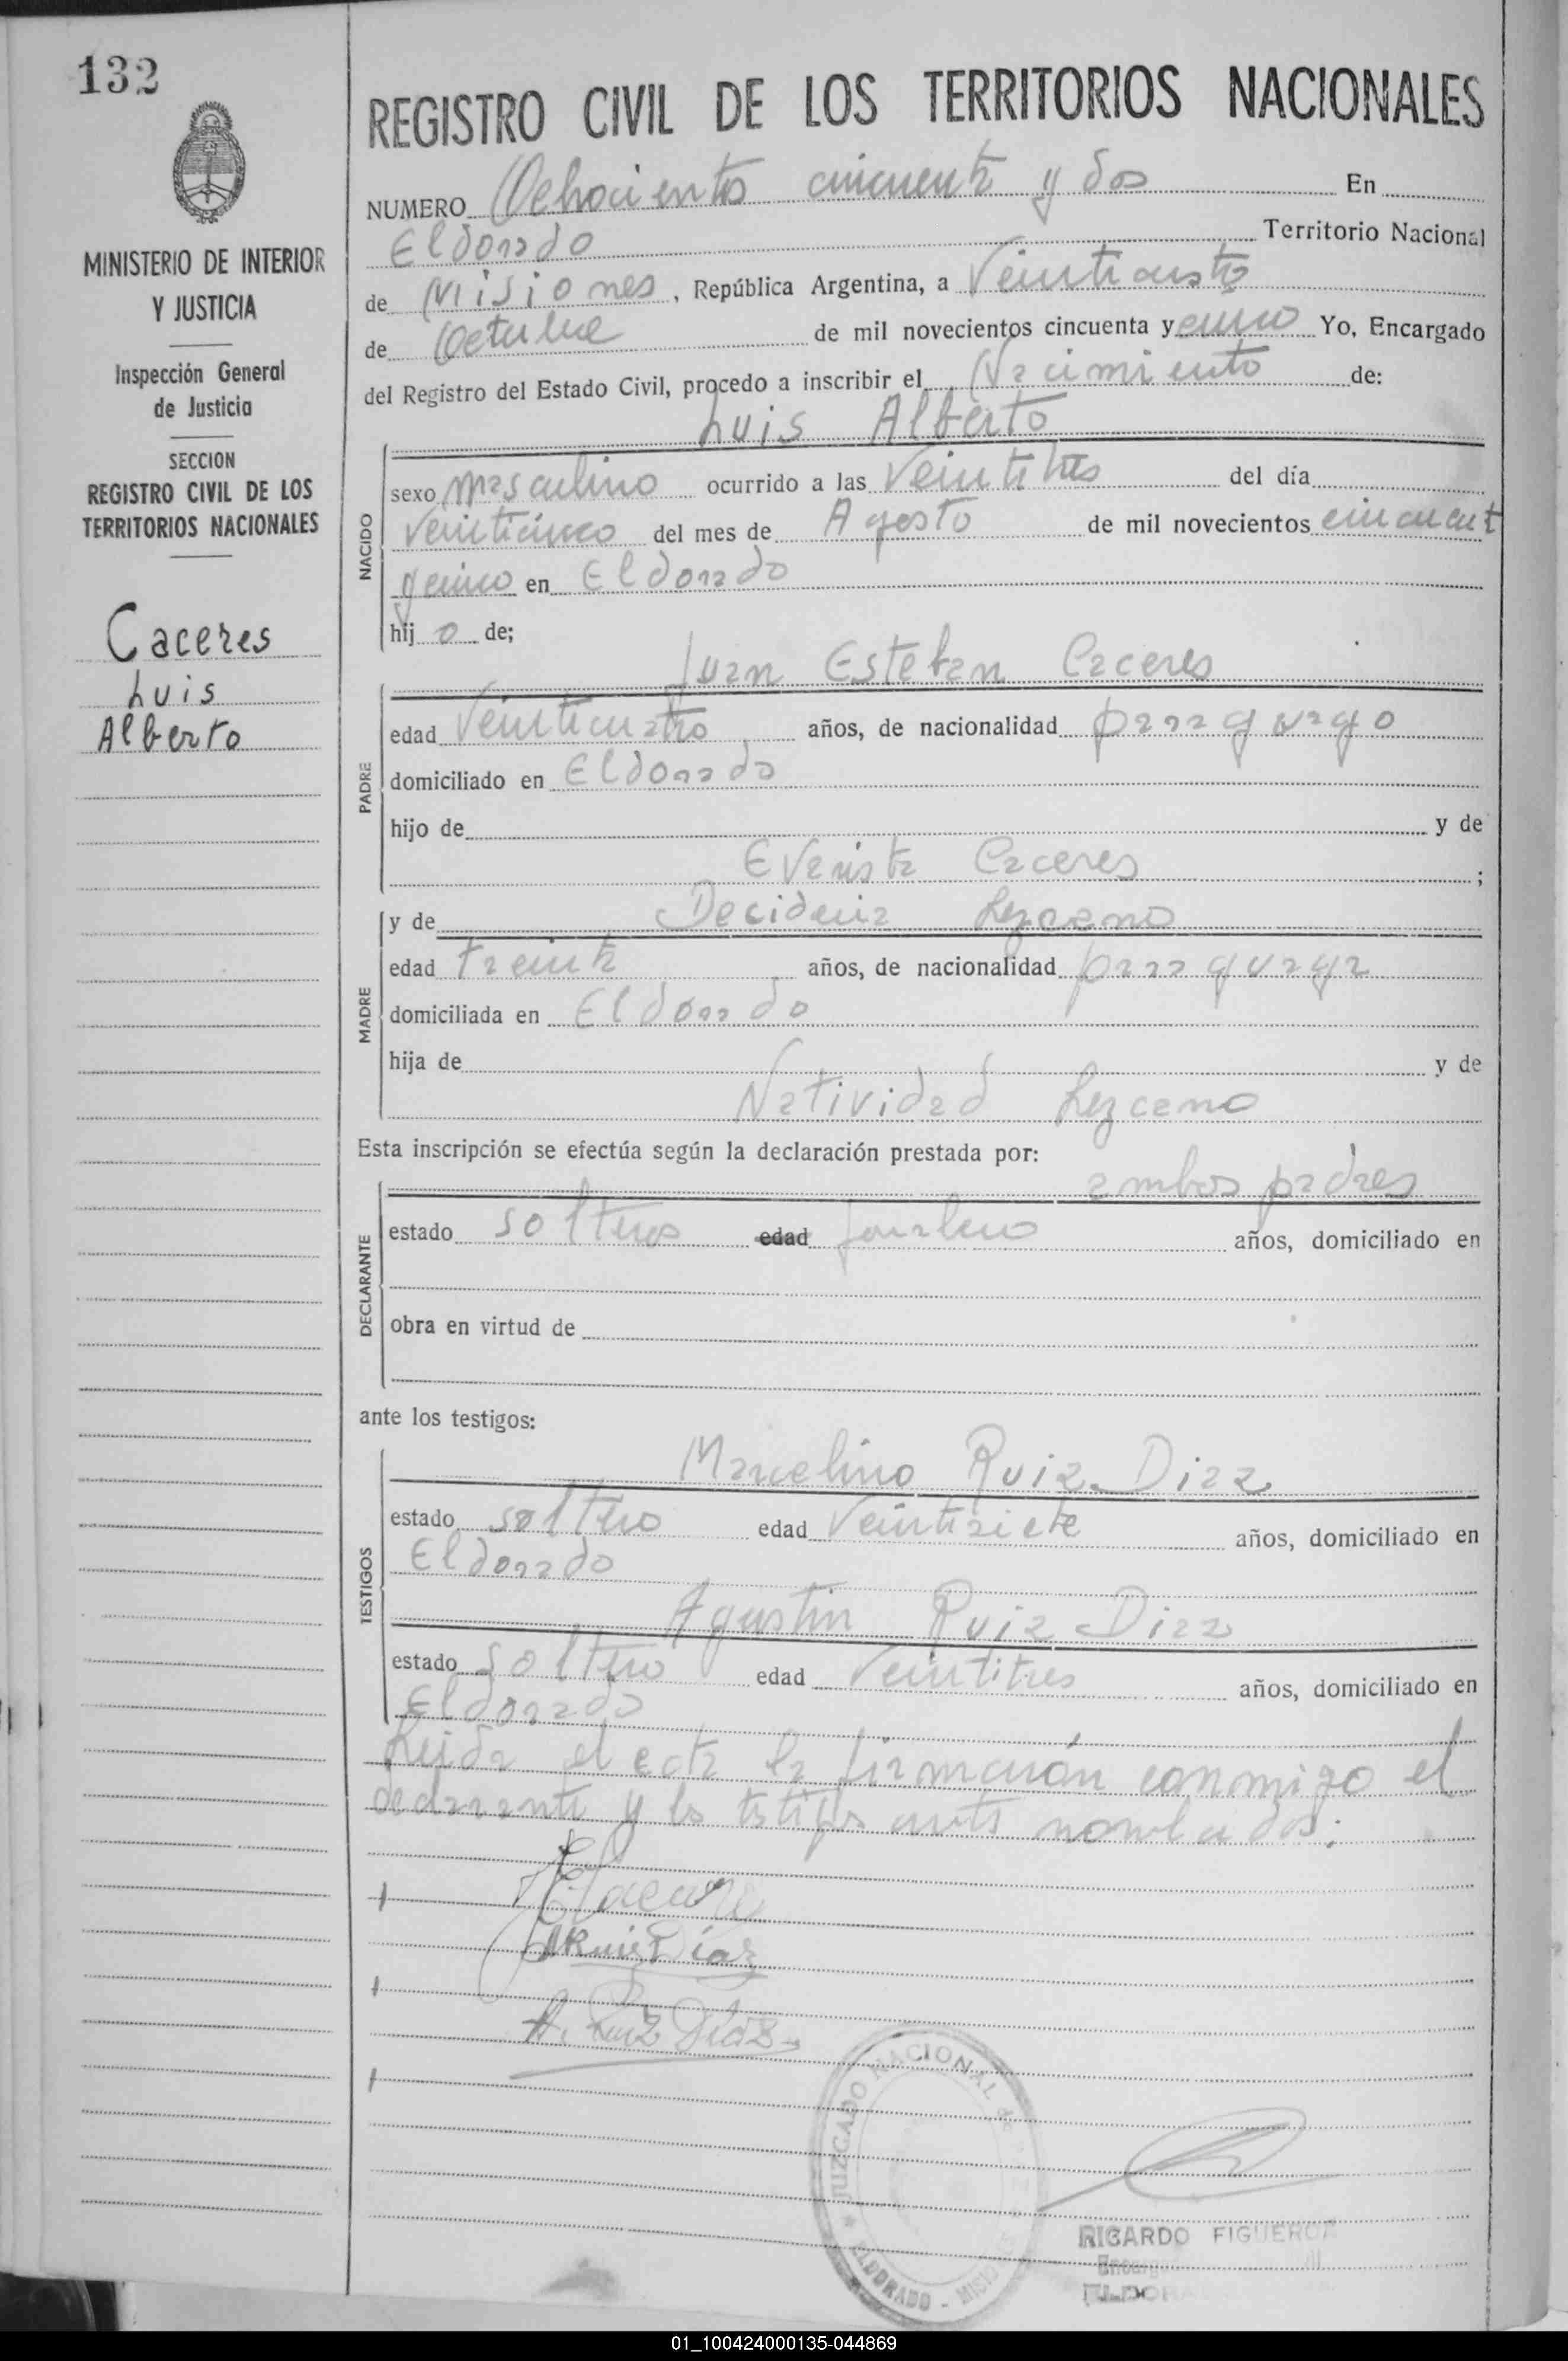 132
MINISTERIO DE INTERIOR
Y JUSTICIA
Inspección General
de Justicia
SECCION
REGISTRO CIVIL DE LOS
TERRITORIOS NACIONALES
Caceres
Luis
Alberto
REGISTRO CIVIL DE LOS TERRITORIOS NACIONALES
NUMERO Ochocientos cincuenta y dos En
Eldorado Territorio Nacional
de Misiones, República Argentina, a Veinticuatro
de Octubre de mil novecientos cincuenta y cinco Yo, Encargado
del Registro del Estado Civil, procedo a inscribir el Nacimiento de:
Luis Alberto
NACIDO
sexo masculino ocurrido a las Veintitres del día
Veinticinco del mes de Agosto de mil novecientos cincuent
y cinco en Eldorado
hij o de;
Juan Esteban Caceres
PADRE
edad Veinticuatro años, de nacionalidad paraguayo
domiciliado en Eldorado
hijo de y de
Evarista Caceres ;
y de Decideria Lezcano
MADRE
edad treinta años, de nacionalidad paraguaya
domiciliada en Eldorado
hija de y de
Natividad Lezcano
Esta inscripción se efectúa según la declaración prestada por:
ambos padres
DECLARANTE
estado solteros edad años, domiciliado en
obra en virtud de
ante los testigos:
TESTIGOS
Marcelino Ruiz Diaz
estado soltero edad Veintisiete años, domiciliado en
Eldorado
Agustin Ruiz Diaz
estado soltero edad Veintitres años, domiciliado en
Eldorado
Leida el acta la firmarón conmigo el
declarante y los testigos ants nombrados.
Ruiz Diaz
A. Ruiz Diaz
JUZGADO NACIONAL DE
ELDORADO - MISIONES
RICARDO FIGUEROA
ELDORADO
01_100424000135-044869